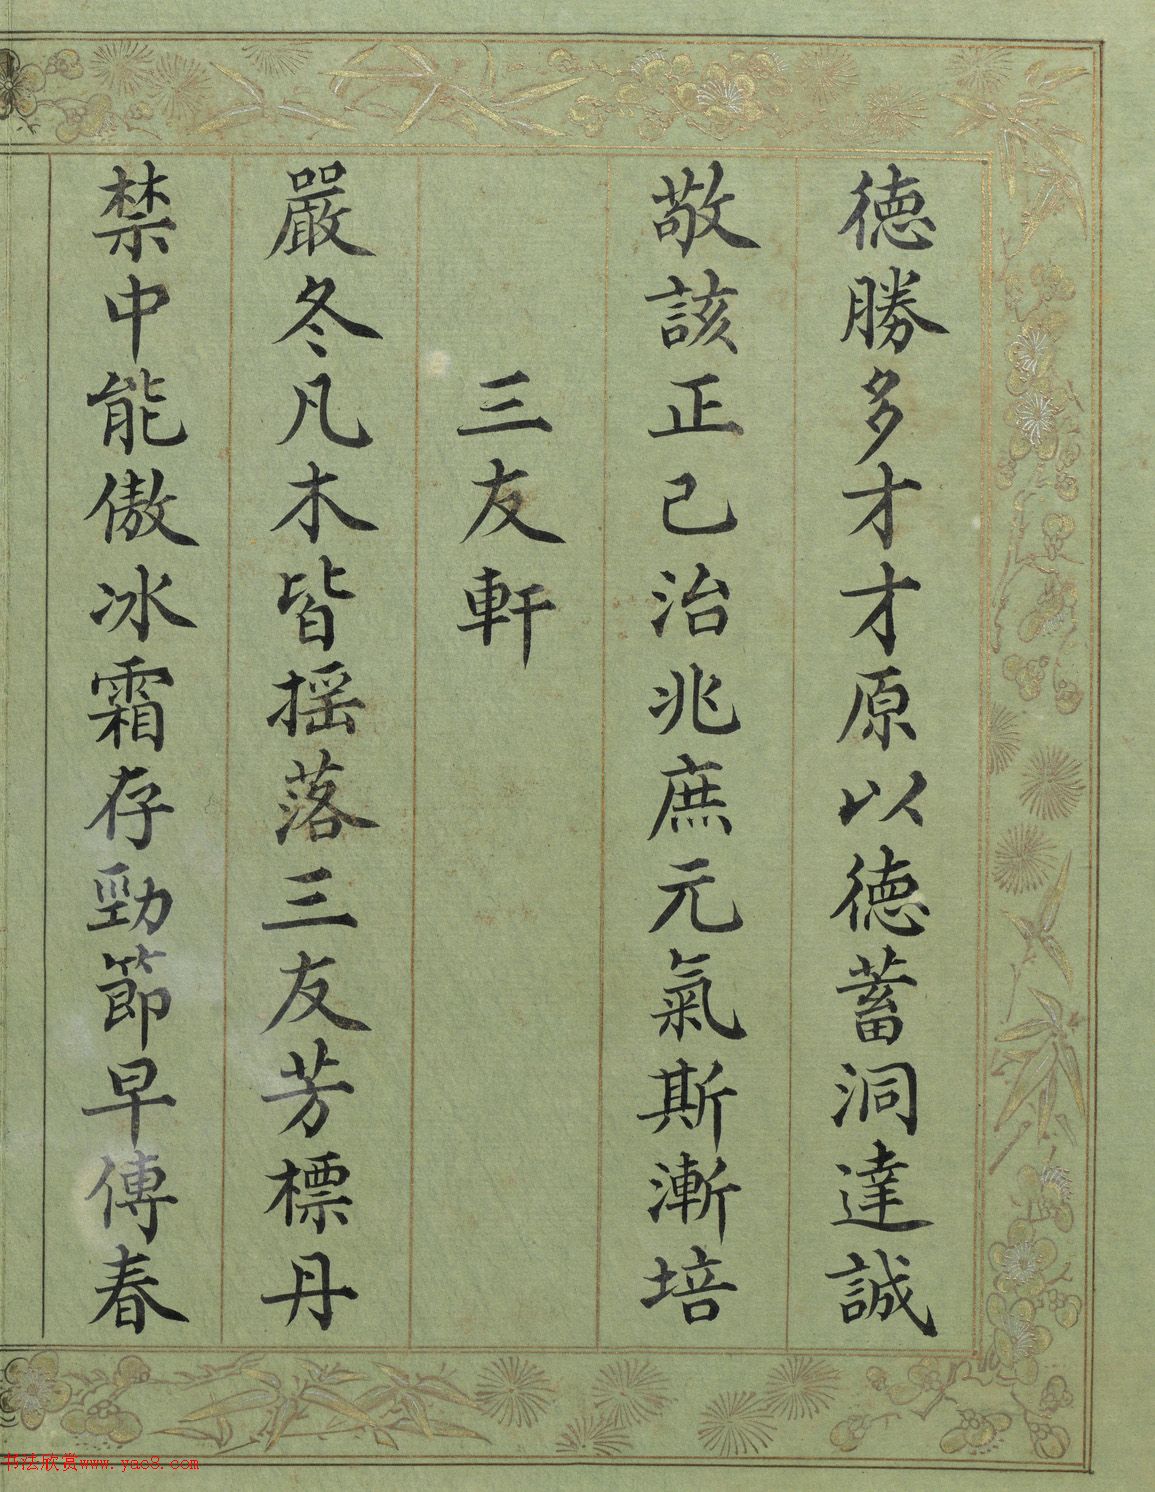 德勝多才才原以德蓄洞達誠
敬該正己治兆庶元氣斯漸培
三友軒
嚴冬凡木皆摇落三友芳標丹
禁中能傲冰霜存勁節早傳春
书法欣赏www.yac8.com